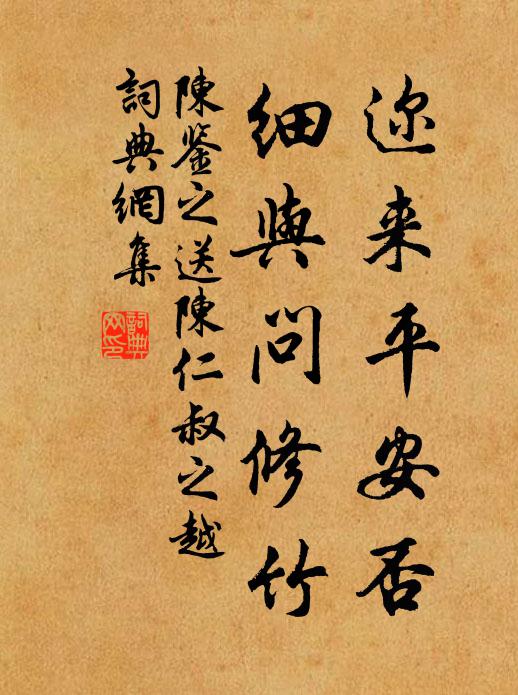 迩来平安否
細與問修竹
陳鉴之送陳仁叔之越
詞典網集
詞典
网印